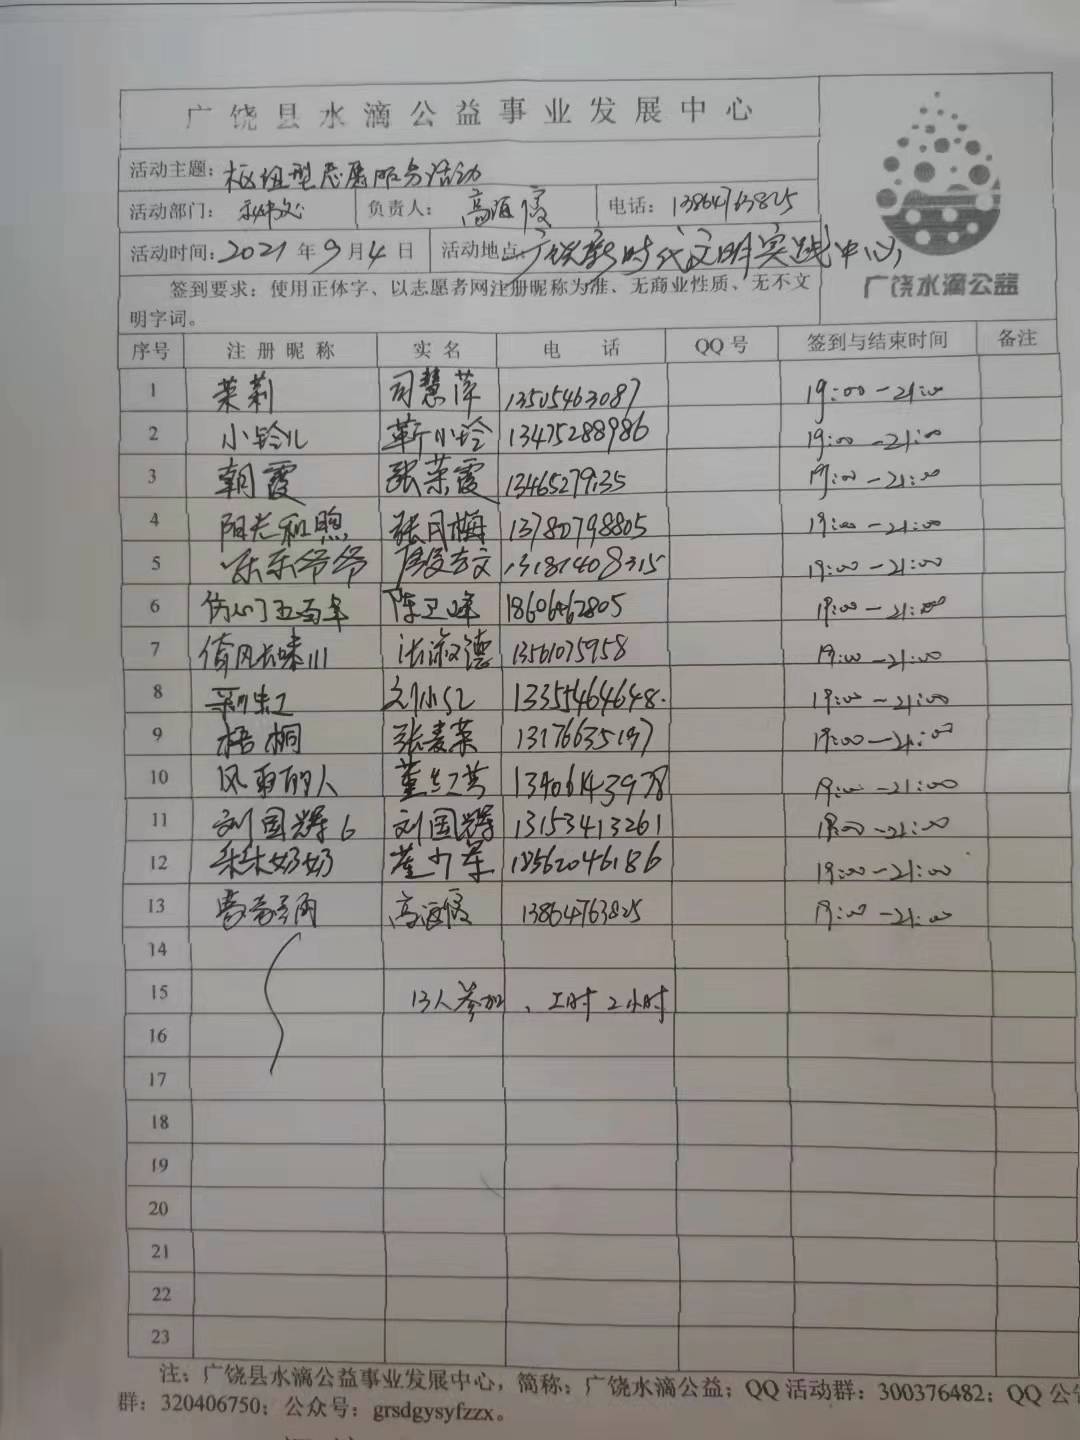 广饶县水滴公益事业发展中心
活动主题：枢纽型志愿服务活动
活动部门： 负责人：高海霞 电话：13864763825
活动时间：2021年9月4日 活动地点：广饶新时代文明实践中心
广饶水滴公益
签到要求：使用正体字、以志愿者网注册昵称为准、无商业性质、无不文
明字词。
序号 注册昵称 实名 电话 QQ号 签到与结束时间 备注
1 茉莉 司慧萍 13505463087 19:00-21:00
2 小铃儿 靳小玲 13475288986 19:00-21:00
3 朝霞 张荣霞 13465279135 19:00-21:00
4 阳光和煦 张月梅 13780798805 19:00-21:00
5 乐乐爷爷 13181408315 19:00-21:00
6 陈卫峰 18606462805 19:00-21:00
7 张淑德 13561075958 19:00-21:00
8 彩虹 刘小红 13355464648 19:00-21:00
9 梧桐 张麦菜 13176635197 19:00-21:00
10 风雨的人 董红芳 13406143978 19:00-21:00
11 刘国辉6 刘国辉 13153413261 19:00-21:00
12 禾禾奶奶 崔少军 18562046186 19:00-21:00
13 高海霞 13864763825 19:00-21:00
14
15 13人参加、工时2小时
16
17
18
19
20
21
22
23
注：广饶县水滴公益事业发展中心，简称：广饶水滴公益；QQ活动群：300376482；QQ公告
群：320406750；公众号：grsdgysyfzzx。